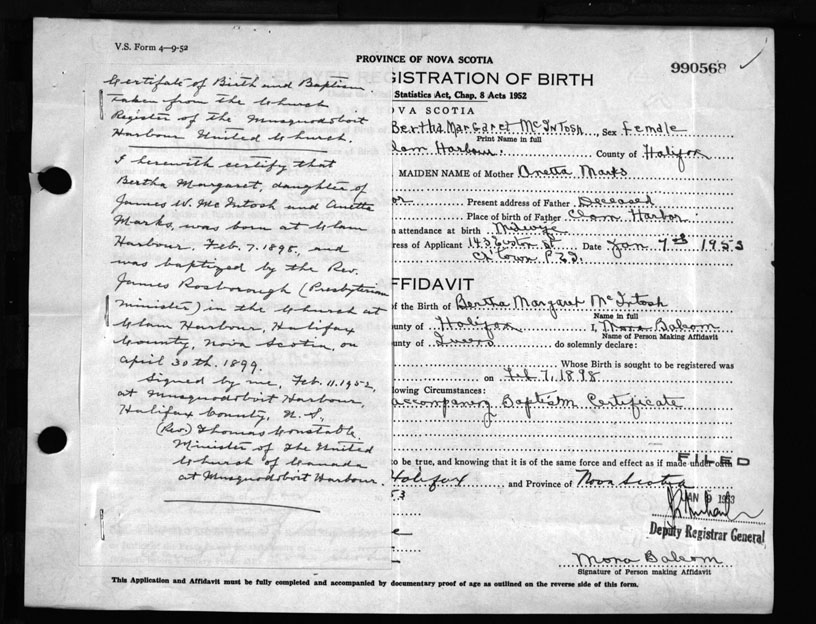 V.S. Form 4—9-52
PROVINCE OF NOVA SCOTIA
990568
Certificate of Birth and Baptism
taken from the Church
Register of the Musquodoboit
Harbour United Church.
I herewith certify that
Bertha Margaret, daughter of
James W. McIntosh and Anetta
Marks, was born at Clam
Harbour, Feb. 7, 1898, and
was baptized by the Rev.
James Rosborough (Presbyterian
Minister) in the Church at
Clam Harbour, Halifax
County, Nova Scotia, on
April 30th. 1899.
Signed by me, Feb. 11, 1952,
at Musquodoboit Harbour,
Halifax County, N.S.
(Rev.) Thomas Constable.
Minister of The United
Church of Canada
at Musquodoboit Harbour.
GISTRATION OF BIRTH
Statistics Act, Chap. 8 Acts 1952
OVA SCOTIA
Bertha Margaret McIntosh, Sex Female
Print Name in full
lam Harbour. County of Halifax
MAIDEN NAME of Mother Anetta Marks
or Present address of Father Deceased
Place of birth of Father Clam Harbor
n attendance at birth Midwife
ress of Applicant 143 Euston St Date Jan 7th 1953
Ch'town P.E.I.
FFIDAVIT
of the Birth of Bertha Margaret McIntosh
Name in full
unty of Halifax I, Mona Balcom
Name of Person Making Affidavit
unty of Queens do solemnly declare:
Whose Birth is sought to be registered was
on Feb 7, 1898
lowing Circumstances:
accompanying Baptism Certificate
to be true, and knowing that it is of the same force and effect as if made under oath
FILED
Halifax and Province of Nova Scotia
53
JAN 9 1953
Deputy Registrar General
Mona Balcom
Signature of Person making Affidavit
This Application and Affidavit must be fully completed and accompanied by documentary proof of age as outlined on the reverse side of this form.